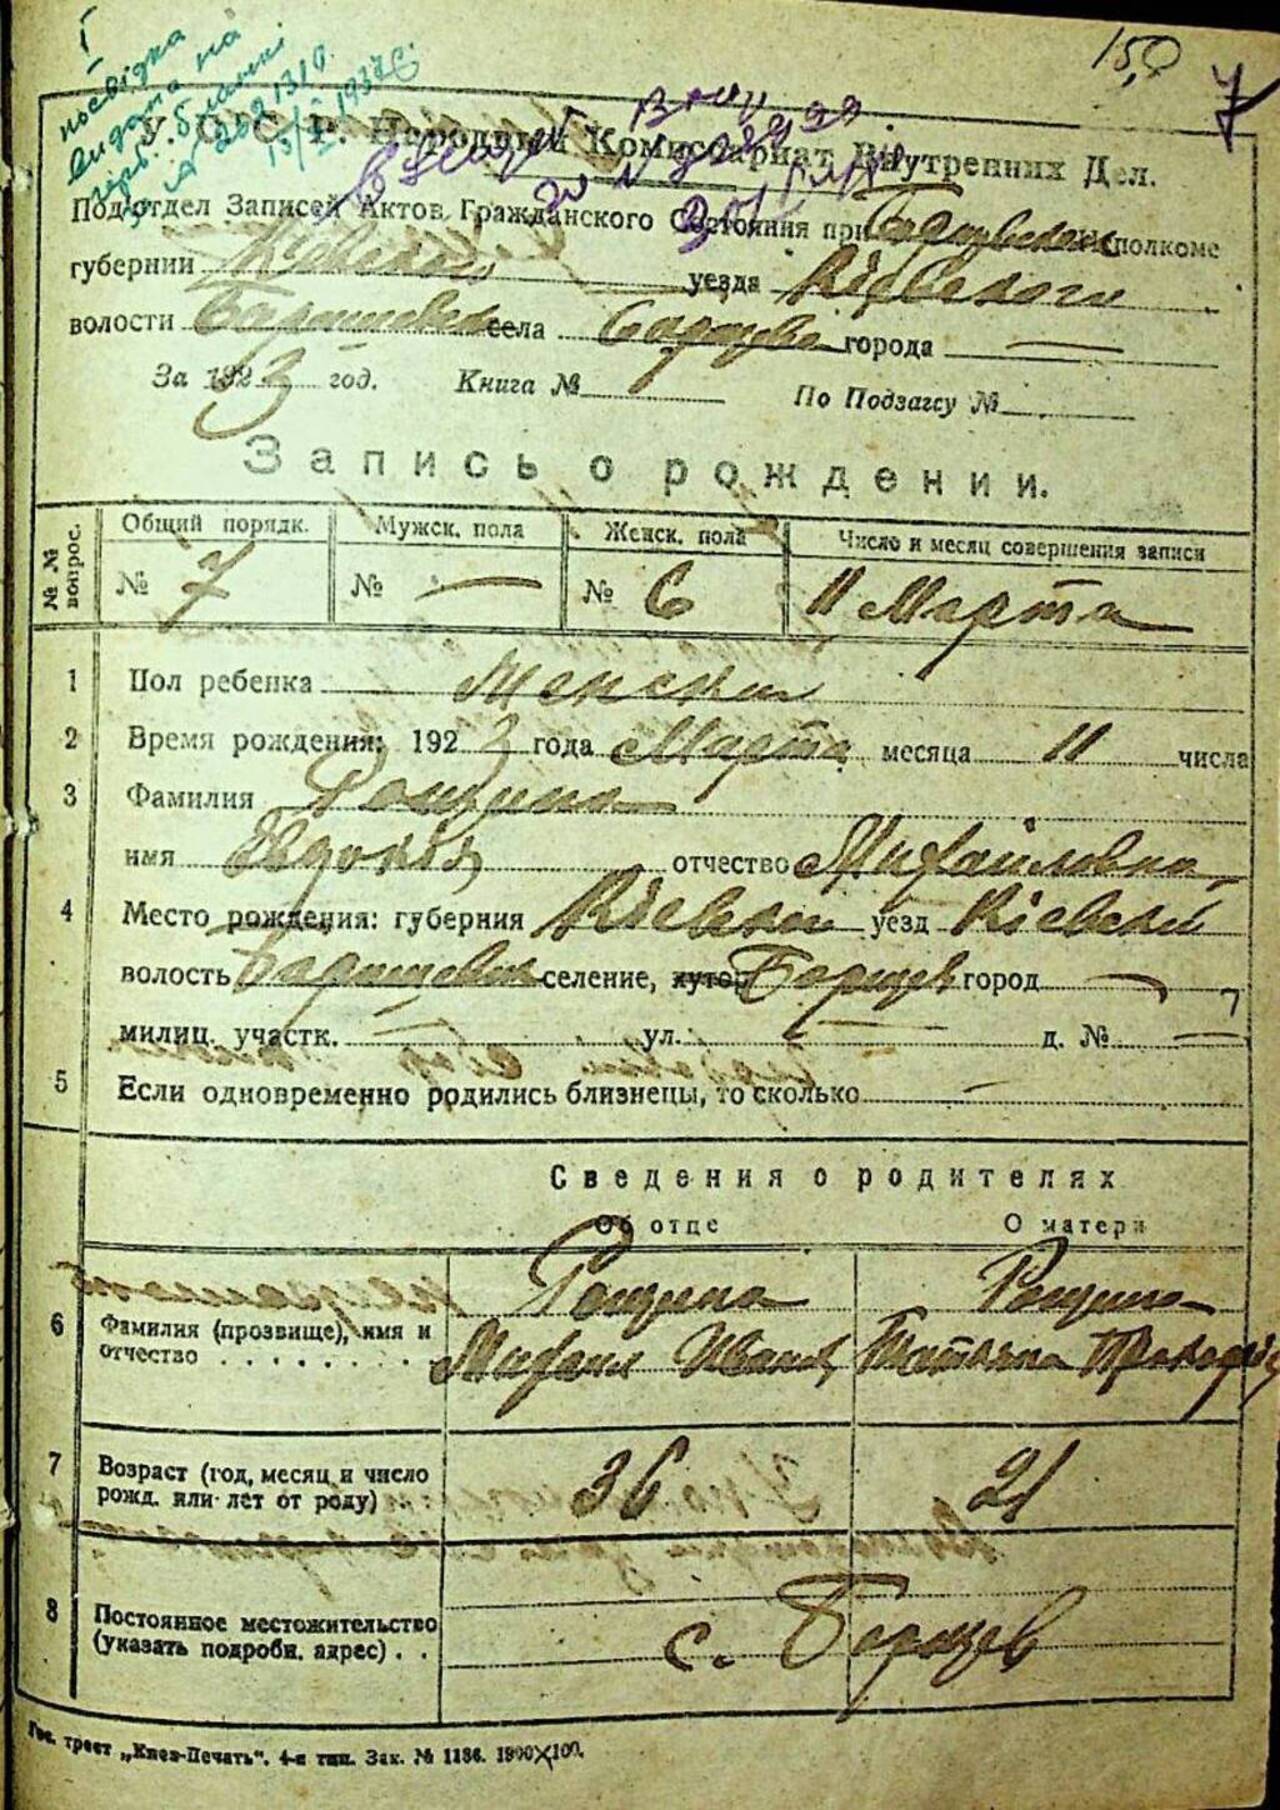 15,0
7
посвідка
видана на
бланкі
У. С. С. Р. Народный Комиссариат Внутренних Дел.
Под'отдел Записей Актов Гражданского Состояния при Борщевском Исполкоме
губернии Киевской уезда Кіевского
волости Баришевск села Борщев города —
За 1923 год. Книга № По Подзагсу №
Запись о рождении.
№ № вопрос. Общий порядк. Мужск. пола Женск. пола Число и месяц совершения записи
№ 7 № — № 6 11 Марта
1 Пол ребенка Женски
2 Время рождения: 1923 года Марта месяца 11 числа
3 Фамилия Рощина
имя Евдокія отчество Михайловна
4 Место рождения: губерния Кіевской уезд Кіевский
волость Баришевск селение, хутор Борщев город —
милиц. участк. — ул. — д. № —
5 Если одновременно родились близнецы, то сколько —
Сведения о родителях
Об отце О матери
Рощина Рощина
6 Фамилия (прозвище), имя и
отчество Михаил Иванов Татьяна Прокофів
7 Возраст (год, месяц и число
рожд. или лет от роду) 36 21
8 Постоянное местожительство
(указать подробн. адрес) с. Борщев
Гос. трест „Киев-Печать". 4-я тип. Зак. № 1186. 1900×100.